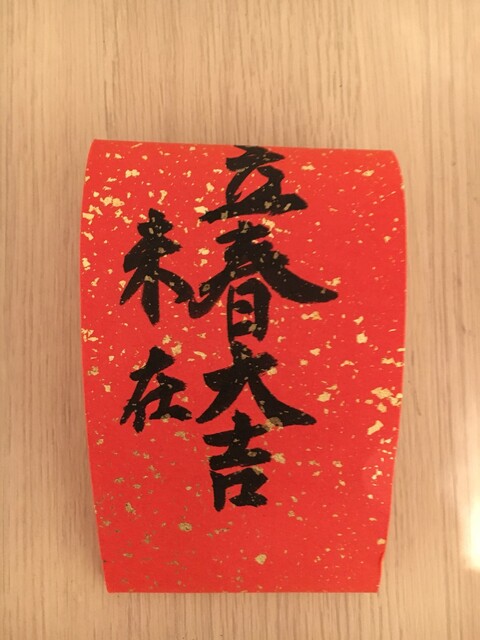 立春大吉
未在